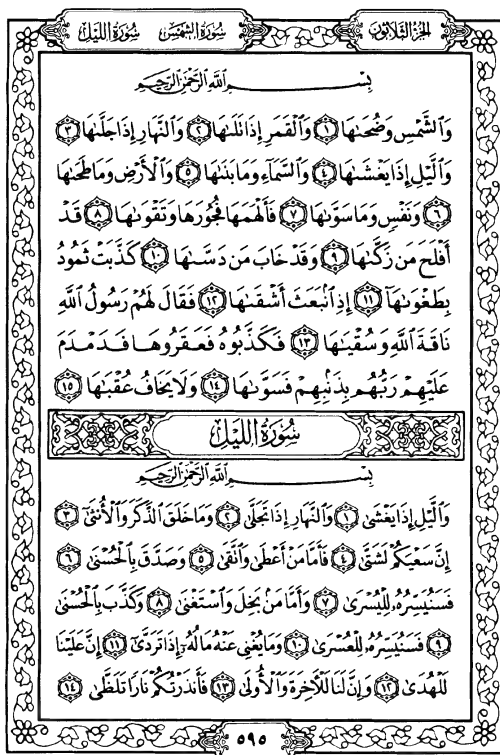 الجزء الثلاثون
سورة الشمس سورة الليل
بِسْمِ اللَّهِ الرَّحْمَٰنِ الرَّحِيمِ
وَالشَّمْسِ وَضُحَىٰهَا ١ وَالْقَمَرِ إِذَا تَلَىٰهَا ٢ وَالنَّهَارِ إِذَا جَلَّىٰهَا ٣
وَالَّيْلِ إِذَا يَغْشَىٰهَا ٤ وَالسَّمَآءِ وَمَا بَنَىٰهَا ٥ وَالْأَرْضِ وَمَا طَحَىٰهَا
٦ وَنَفْسٍ وَمَا سَوَّىٰهَا ٧ فَأَلْهَمَهَا فُجُورَهَا وَتَقْوَىٰهَا ٨ قَدْ
أَفْلَحَ مَن زَكَّىٰهَا ٩ وَقَدْ خَابَ مَن دَسَّىٰهَا ١٠ كَذَّبَتْ ثَمُودُ
بِطَغْوَىٰهَآ ١١ إِذِ انۢبَعَثَ أَشْقَىٰهَا ١٢ فَقَالَ لَهُمْ رَسُولُ اللَّهِ
نَاقَةَ اللَّهِ وَسُقْيَىٰهَا ١٣ فَكَذَّبُوهُ فَعَقَرُوهَا فَدَمْدَمَ
عَلَيْهِمْ رَبُّهُم بِذَنۢبِهِمْ فَسَوَّىٰهَا ١٤ وَلَا يَخَافُ عُقْبَىٰهَا ١٥
سُورَةُ اللَّيْلِ
بِسْمِ اللَّهِ الرَّحْمَٰنِ الرَّحِيمِ
وَالَّيْلِ إِذَا يَغْشَىٰ ١ وَالنَّهَارِ إِذَا تَجَلَّىٰ ٢ وَمَا خَلَقَ الذَّكَرَ وَالْأُنثَىٰٓ ٣
إِنَّ سَعْيَكُمْ لَشَتَّىٰ ٤ فَأَمَّا مَنْ أَعْطَىٰ وَاتَّقَىٰ ٥ وَصَدَّقَ بِالْحُسْنَىٰ ٦
فَسَنُيَسِّرُهُۥ لِلْيُسْرَىٰ ٧ وَأَمَّا مَنۢ بَخِلَ وَاسْتَغْنَىٰ ٨ وَكَذَّبَ بِالْحُسْنَىٰ
٩ فَسَنُيَسِّرُهُۥ لِلْعُسْرَىٰ ١٠ وَمَا يُغْنِي عَنْهُ مَالُهُۥٓ إِذَا تَرَدَّىٰٓ ١١ إِنَّ عَلَيْنَا
لَلْهُدَىٰ ١٢ وَإِنَّ لَنَا لَلْآخِرَةَ وَالْأُولَىٰ ١٣ فَأَنذَرْتُكُمْ نَارًا تَلَظَّىٰ ١٤
٥٩٥